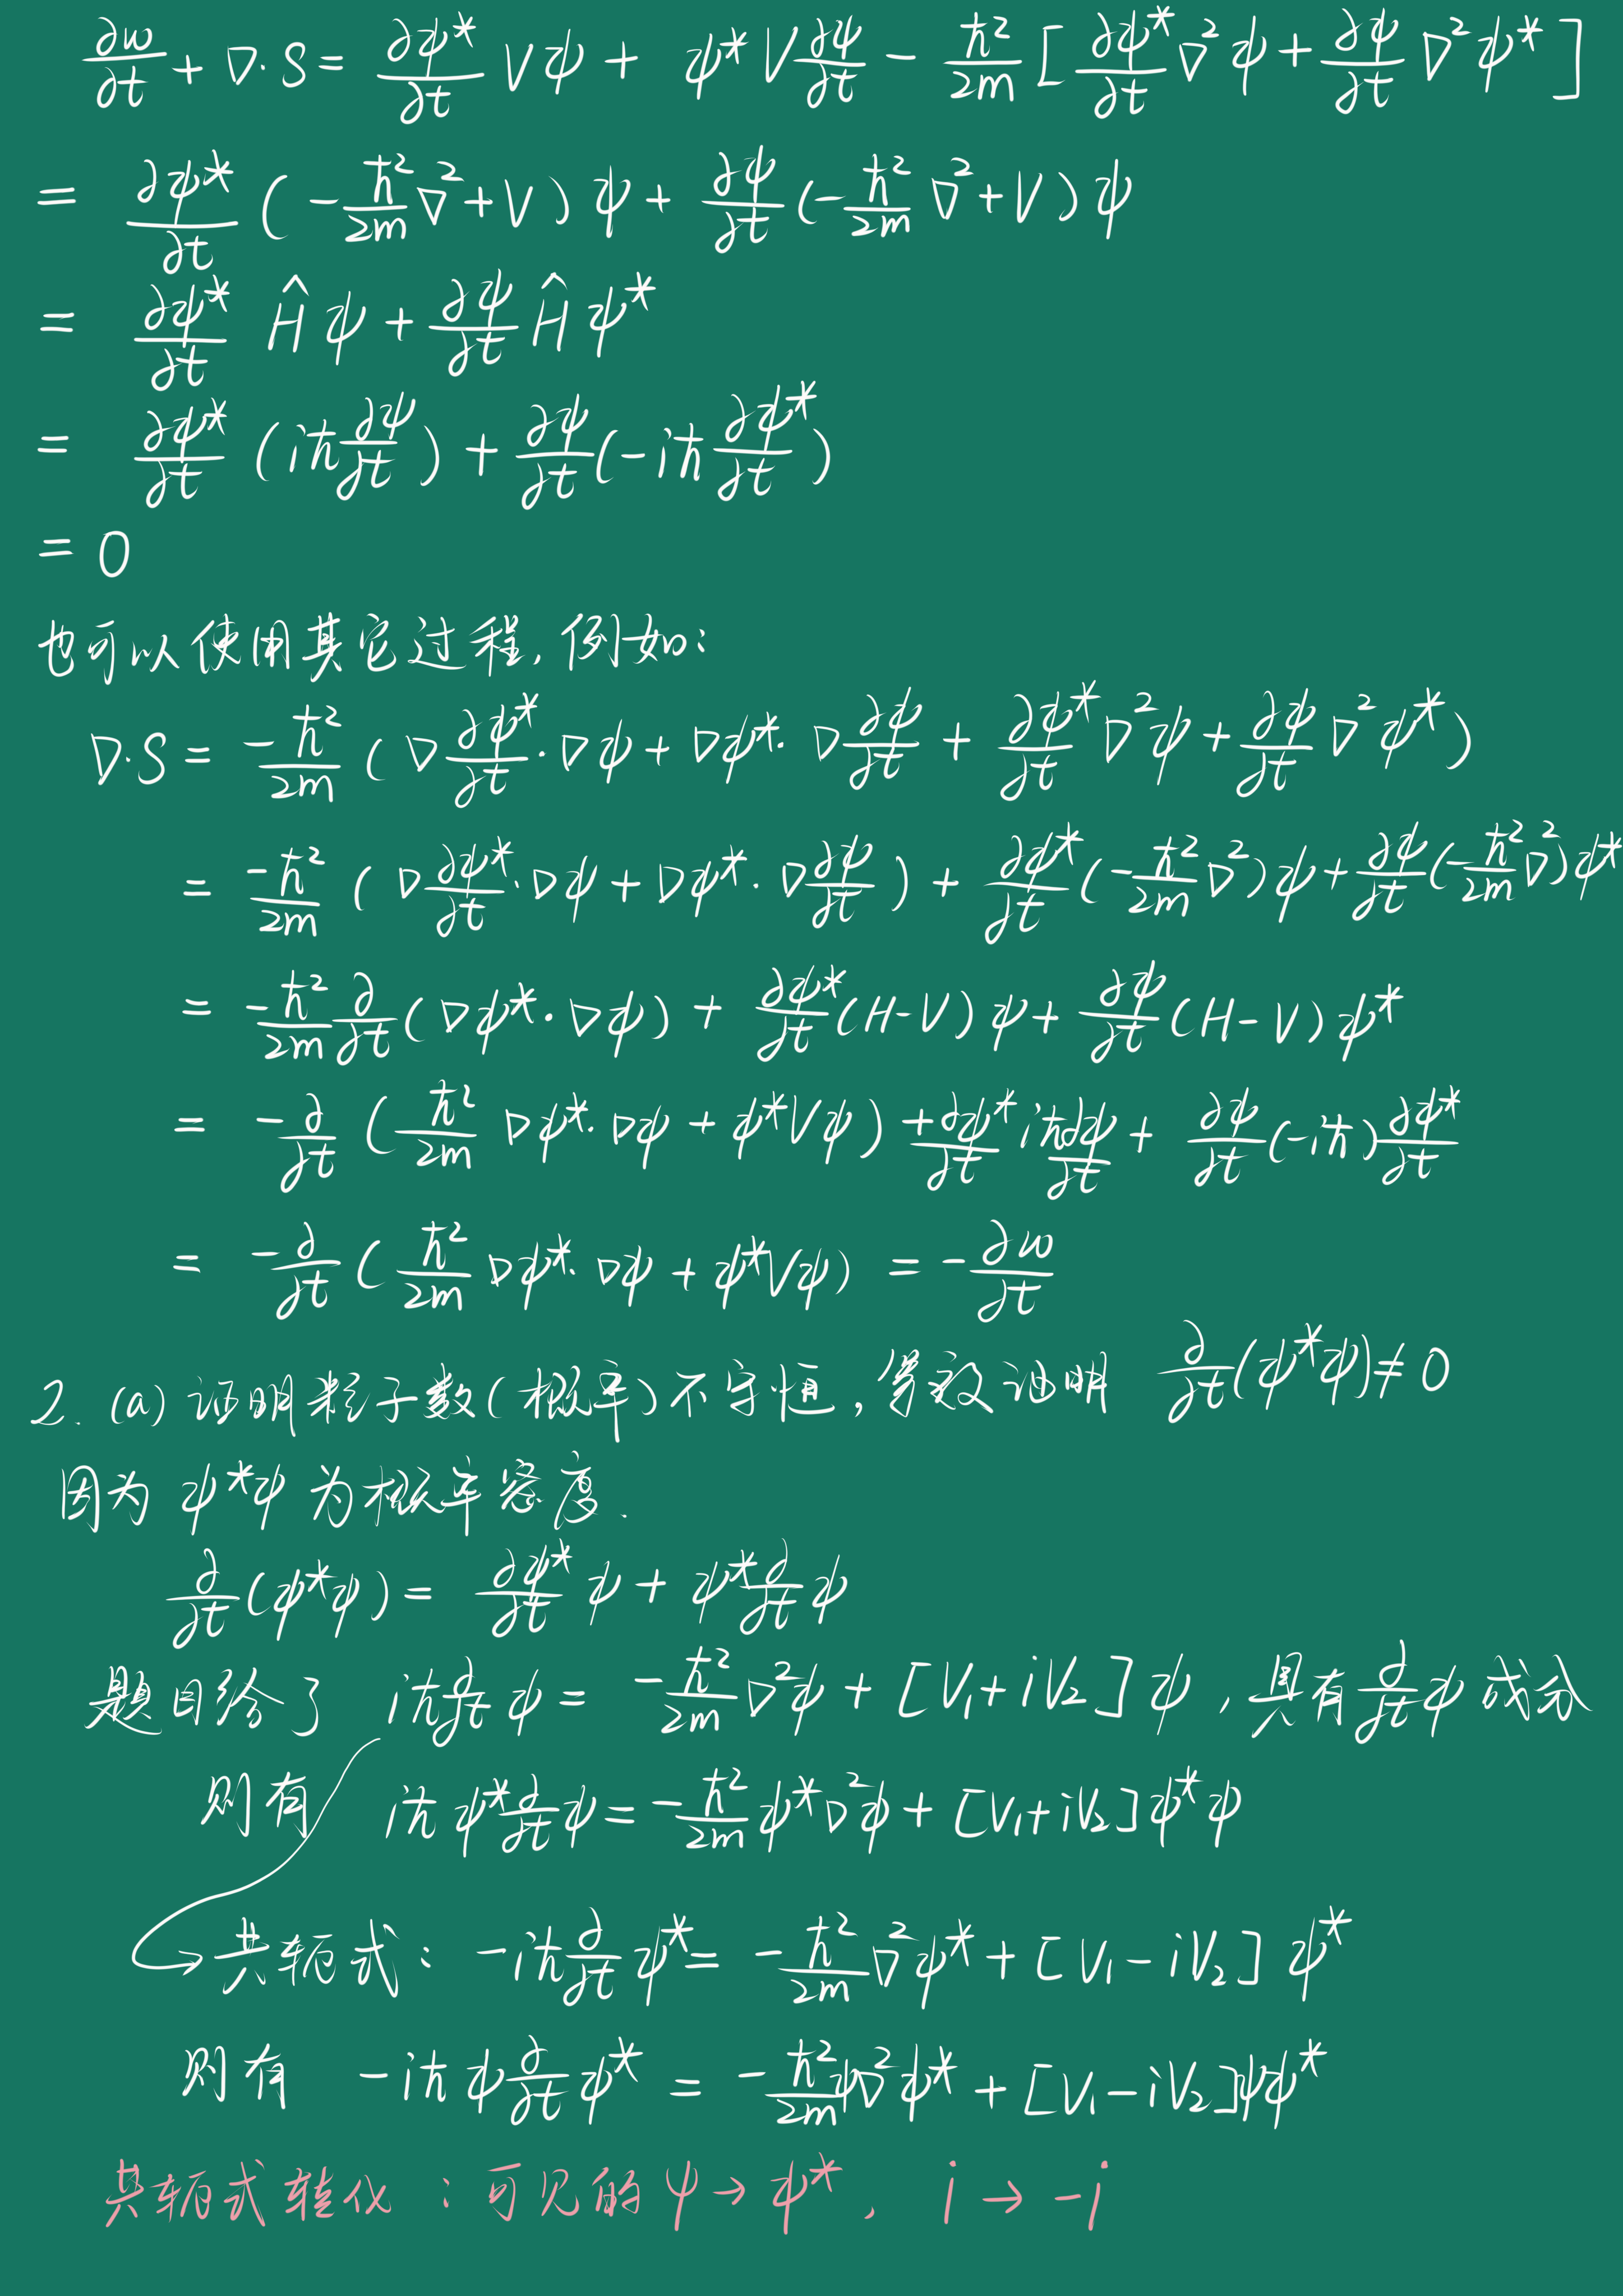 ∂w/∂t + ∇·S = ∂ψ*/∂t Vψ + ψ*V ∂ψ/∂t - ħ²/2m [∂ψ*/∂t ∇²ψ + ∂ψ/∂t ∇²ψ*]
= ∂ψ*/∂t (-ħ²/2m ∇²+V)ψ + ∂ψ/∂t (-ħ²/2m ∇²+V)ψ
= ∂ψ*/∂t Ĥψ + ∂ψ/∂t Ĥψ*
= ∂ψ*/∂t (iħ ∂ψ/∂t) + ∂ψ/∂t (-iħ ∂ψ*/∂t)
= 0
也可以使用其它过程,例如:
∇·S = -ħ²/2m (∇ ∂ψ*/∂t · ∇ψ + ∇ψ* · ∇ ∂ψ/∂t + ∂ψ*/∂t ∇²ψ + ∂ψ/∂t ∇²ψ*)
= -ħ²/2m (∇ ∂ψ*/∂t · ∇ψ + ∇ψ* · ∇ ∂ψ/∂t) + ∂ψ*/∂t (-ħ²/2m ∇²)ψ + ∂ψ/∂t (-ħ²/2m ∇²)ψ*
= -ħ²/2m ∂/∂t (∇ψ*·∇ψ) + ∂ψ*/∂t (H-V)ψ + ∂ψ/∂t (H-V)ψ*
= -∂/∂t (ħ²/2m ∇ψ*·∇ψ + ψ*Vψ) + ∂ψ*/∂t iħ ∂ψ/∂t + ∂ψ/∂t (-iħ) ∂ψ*/∂t
= -∂/∂t (ħ²/2m ∇ψ*·∇ψ + ψ*Vψ) = -∂w/∂t
2. (a) 证明粒子数(概率)不守恒,等效证明 ∂/∂t (ψ*ψ) ≠ 0
因为 ψ*ψ 为概率密度.
∂/∂t (ψ*ψ) = ∂ψ*/∂t ψ + ψ* ∂/∂t ψ
题目给了 iħ ∂/∂t ψ = -ħ²/2m ∇²ψ + [V₁+iV₂]ψ ,具有 ∂/∂t ψ 成分
则有 iħψ* ∂/∂t ψ = -ħ²/2m ψ*∇²ψ + [V₁+iV₂]ψ*ψ
→共轭式: -iħ ∂/∂t ψ* = -ħ²/2m ∇²ψ* + [V₁-iV₂]ψ*
则有 -iħψ ∂/∂t ψ* = -ħ²/2m ψ∇²ψ* + [V₁-iV₂]ψψ*
共轭式转化:可见的 ψ→ψ*, i→-i